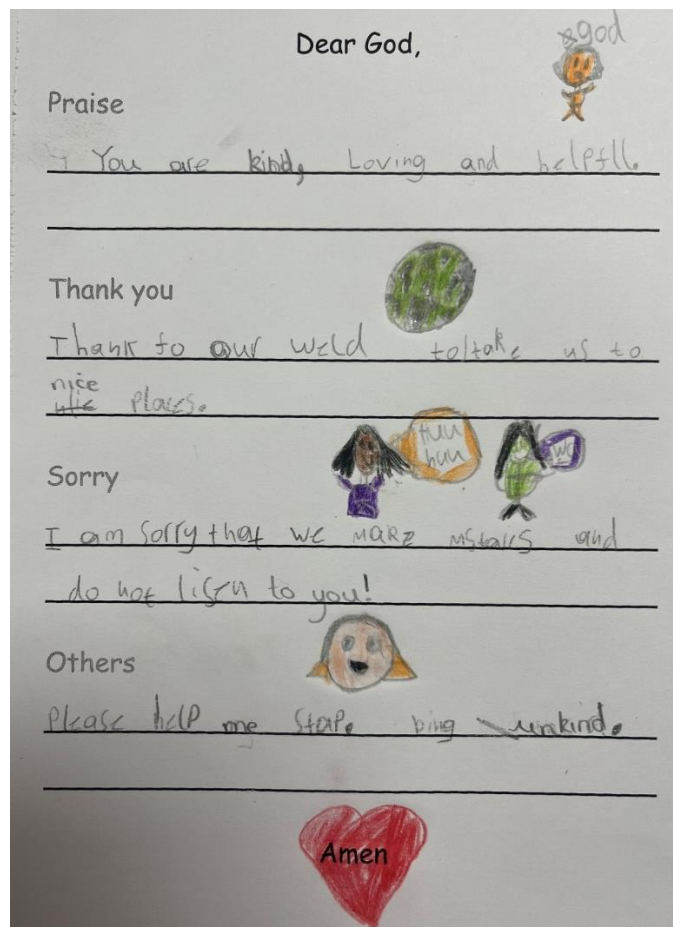 Dear God,
god
Praise
You are kind, Loving and helpfll.
Thank you
Thank to our weld to take us to
nice
places.
Sorry
huu
huu
I am sorry that we make mstaics and
do not lisen to you!
Others
Please help me stop. bing unkind.
Amen